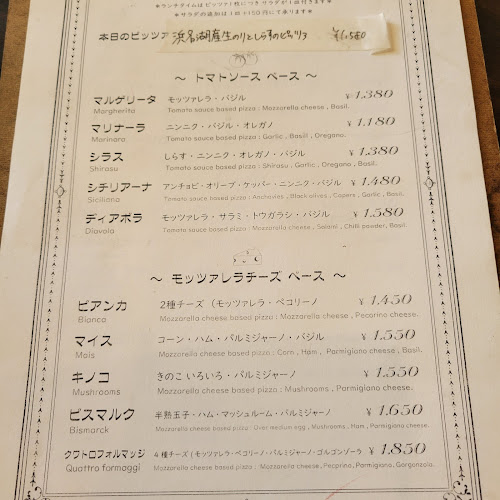 ＊ランチタイムはピッツァ1枚につきサラダが1皿付きます＊
＊サラダの追加は1皿＋150円にて承ります＊
本日のピッツァ 浜名湖産生のりとしらすのピッツァ ¥1,580
～ トマトソース ベース ～
マルゲリータ モッツァレラ・バジル ¥1.380
Margherita Tomato sauce based pizza : Mozzarella cheese , Basil.
マリナーラ ニンニク・バジル・オレガノ ¥1.180
Marinara Tomato sauce based pizza : Garlic , Basill , Oregano.
シラス しらす・ニンニク・オレガノ・バジル ¥1.380
Shirasu Tomato sauce based pizza : Shirasu , Garlic , Oregano , Basil.
シチリアーナ アンチョビ・オリーブ・ケッパー・ニンニク・バジル ¥1.480
Siciliana Tomato sauce based pizza : Anchovies , Black olives , Capers , Garlic , Basil.
ディアボラ モッツァレラ・サラミ・トウガラシ・バジル ¥1.580
Diavola Tomato sauce based pizza : Mozzarella cheese , Salami , Chilli powder, Basil.
～ モッツァレラチーズ ベース ～
ビアンカ 2種チーズ（モッツァレラ・ペコリーノ ¥1.450
Bianca Mozzarella cheese based pizza : Mozzarella cheese , Pecorino cheese.
マイス コーン・ハム・パルミジャーノ・バジル ¥1.550
Mais Mozzarella cheese based pizza : Corn , Ham , Parmigiano cheese , Basil.
キノコ きのこ いろいろ・パルミジャーノ ¥1.550
Mushrooms Mozzarella cheese based pizza : Mushrooms , Parmigiano cheese.
ビスマルク 半熟玉子・ハム・マッシュルーム・パルミジャーノ ¥1.650
Bismarck Mozzarella cheese based pizza : Over medium egg , Mushrooms , Ham , Parmigiano cheese.
クワトロフォルマッジ 4種チーズ（モッツァレラ・ペコリーノ・パルミジャーノ・ゴルゴンゾーラ ¥1.850
Quattro formaggi Mozzarella cheese based pizza : Mozzarella cheese, Pecprino, Parmigiano, Gorgonzola.